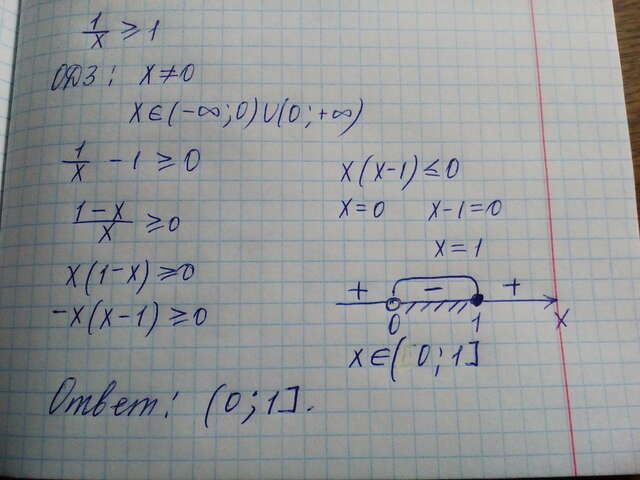 1/x ≥ 1
ОДЗ: x ≠ 0
x ∈ (-∞; 0) ∪ (0; +∞)
1/x - 1 ≥ 0
(1-x)/x ≥ 0
x(1-x) ≥ 0
-x(x-1) ≥ 0
x(x-1) ≤ 0
x = 0 x-1 = 0
x = 1
+ - +
0 1 x
x ∈ (0; 1]
Ответ: (0; 1].